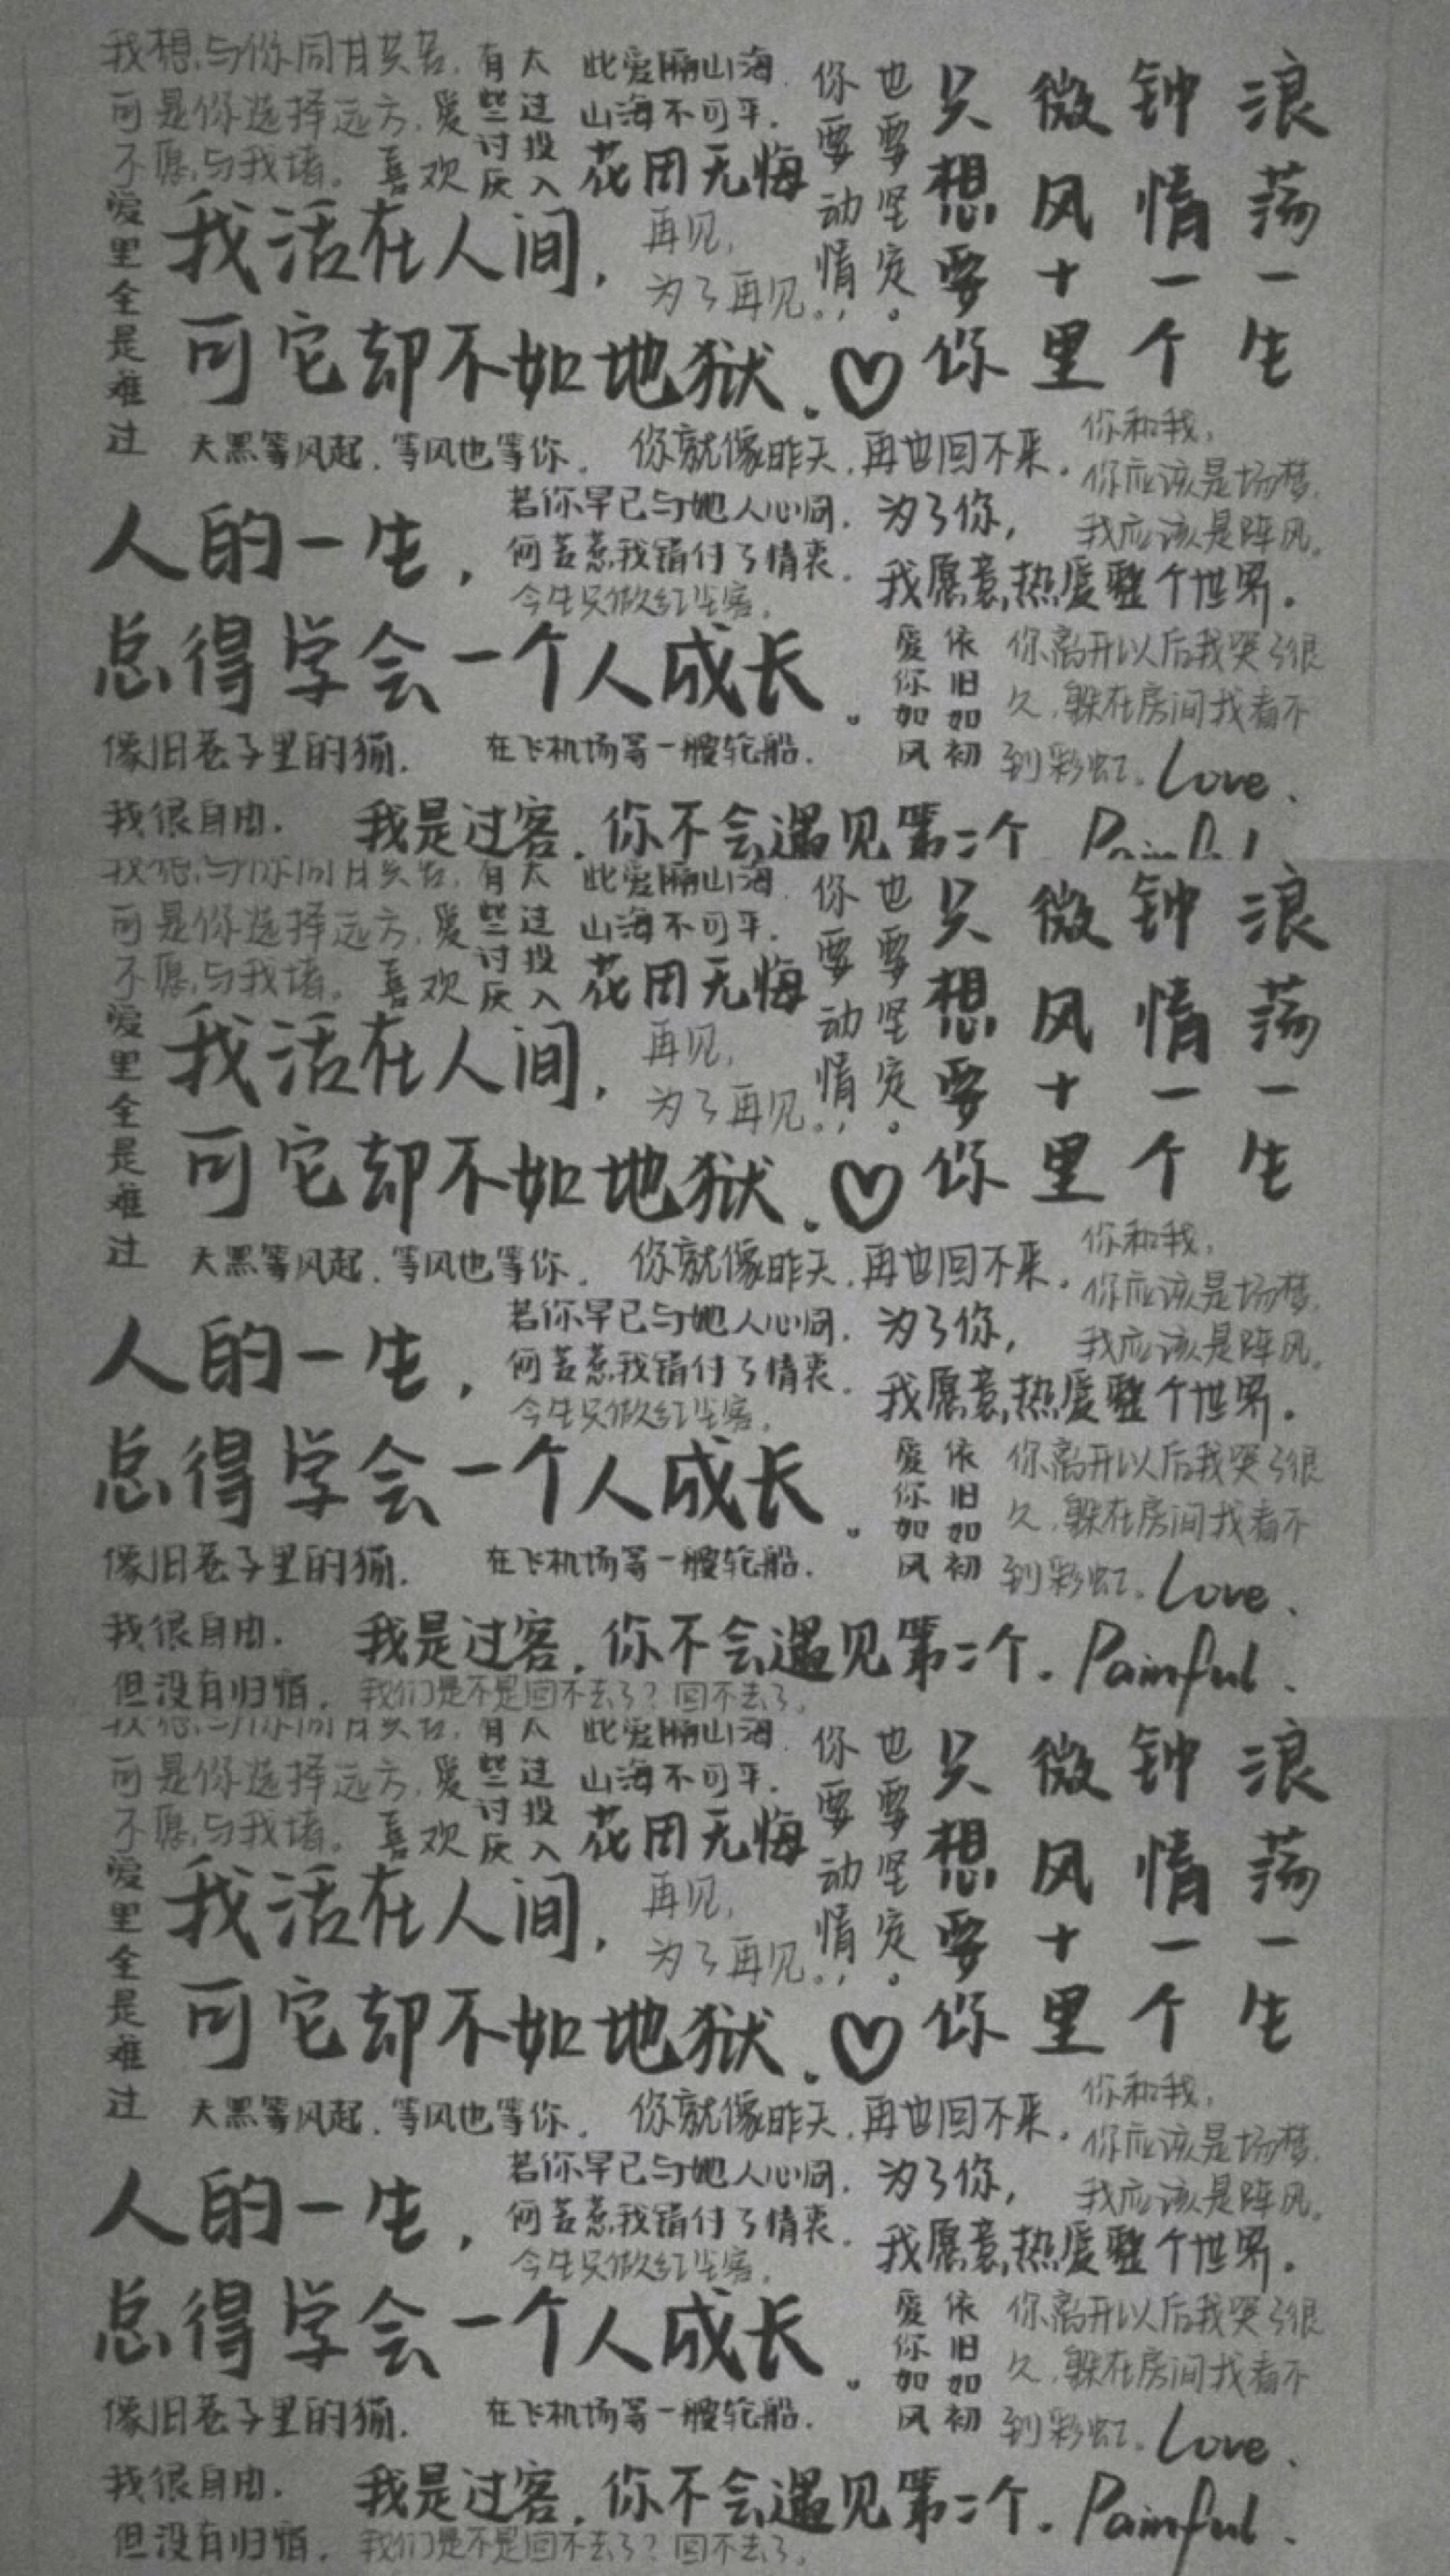 我想与你同甘共苦.
可是你选择远方.
不愿与我堵。
爱喜欢
有些讨厌
太过投入
此爱隔山海.
山海不可平.
花田无悔
你要动情,
也要坚定。
只想要你
微风十里
钟情一个
浪荡一生
爱里全是难过
我活在人间,
可它却不如地狱.♡
再见,
为了再见。
天黑等风起.等风也等你.
你就像昨天.再也回不来.
你和我,
你应该是场梦,
我应该是阵风。
人的一生,
总得学会一个人成长。
若你早已与她人心同.
何苦惹我错付了情衷.
今生只做红尘客.
为了你,
我愿意热爱整个世界.
爱你如风
依旧如初
你离开以后我哭了很
久,躲在房间我看不
到彩虹。
Love.
像旧巷子里的猫.
在飞机场等一艘轮船.
我很自由.
我是过客.你不会遇见第二个.
Painful
我想与你同甘共苦.
可是你选择远方.
不愿与我堵。
爱喜欢
有些讨厌
太过投入
此爱隔山海.
山海不可平.
花田无悔
你要动情,
也要坚定。
只想要你
微风十里
钟情一个
浪荡一生
爱里全是难过
我活在人间,
可它却不如地狱.♡
再见,
为了再见。
天黑等风起.等风也等你.
你就像昨天.再也回不来.
你和我,
你应该是场梦,
我应该是阵风。
人的一生,
总得学会一个人成长。
若你早已与她人心同.
何苦惹我错付了情衷.
今生只做红尘客.
为了你,
我愿意热爱整个世界.
爱你如风
依旧如初
你离开以后我哭了很
久,躲在房间我看不
到彩虹。
Love.
像旧巷子里的猫.
在飞机场等一艘轮船.
我很自由.
我是过客.你不会遇见第二个.
Painful.
但没有归宿.
我们是不是回不去了?回不去了。
我想与你同甘共苦.
可是你选择远方.
不愿与我堵。
爱喜欢
有些讨厌
太过投入
此爱隔山海.
山海不可平.
花田无悔
你要动情,
也要坚定。
只想要你
微风十里
钟情一个
浪荡一生
爱里全是难过
我活在人间,
可它却不如地狱.♡
再见,
为了再见。
天黑等风起.等风也等你.
你就像昨天.再也回不来.
你和我,
你应该是场梦,
我应该是阵风。
人的一生,
总得学会一个人成长。
若你早已与她人心同.
何苦惹我错付了情衷.
今生只做红尘客.
为了你,
我愿意热爱整个世界.
爱你如风
依旧如初
你离开以后我哭了很
久,躲在房间我看不
到彩虹。
Love.
像旧巷子里的猫.
在飞机场等一艘轮船.
我很自由.
我是过客.你不会遇见第二个.
Painful.
但没有归宿.
我们是不是回不去了?回不去了。